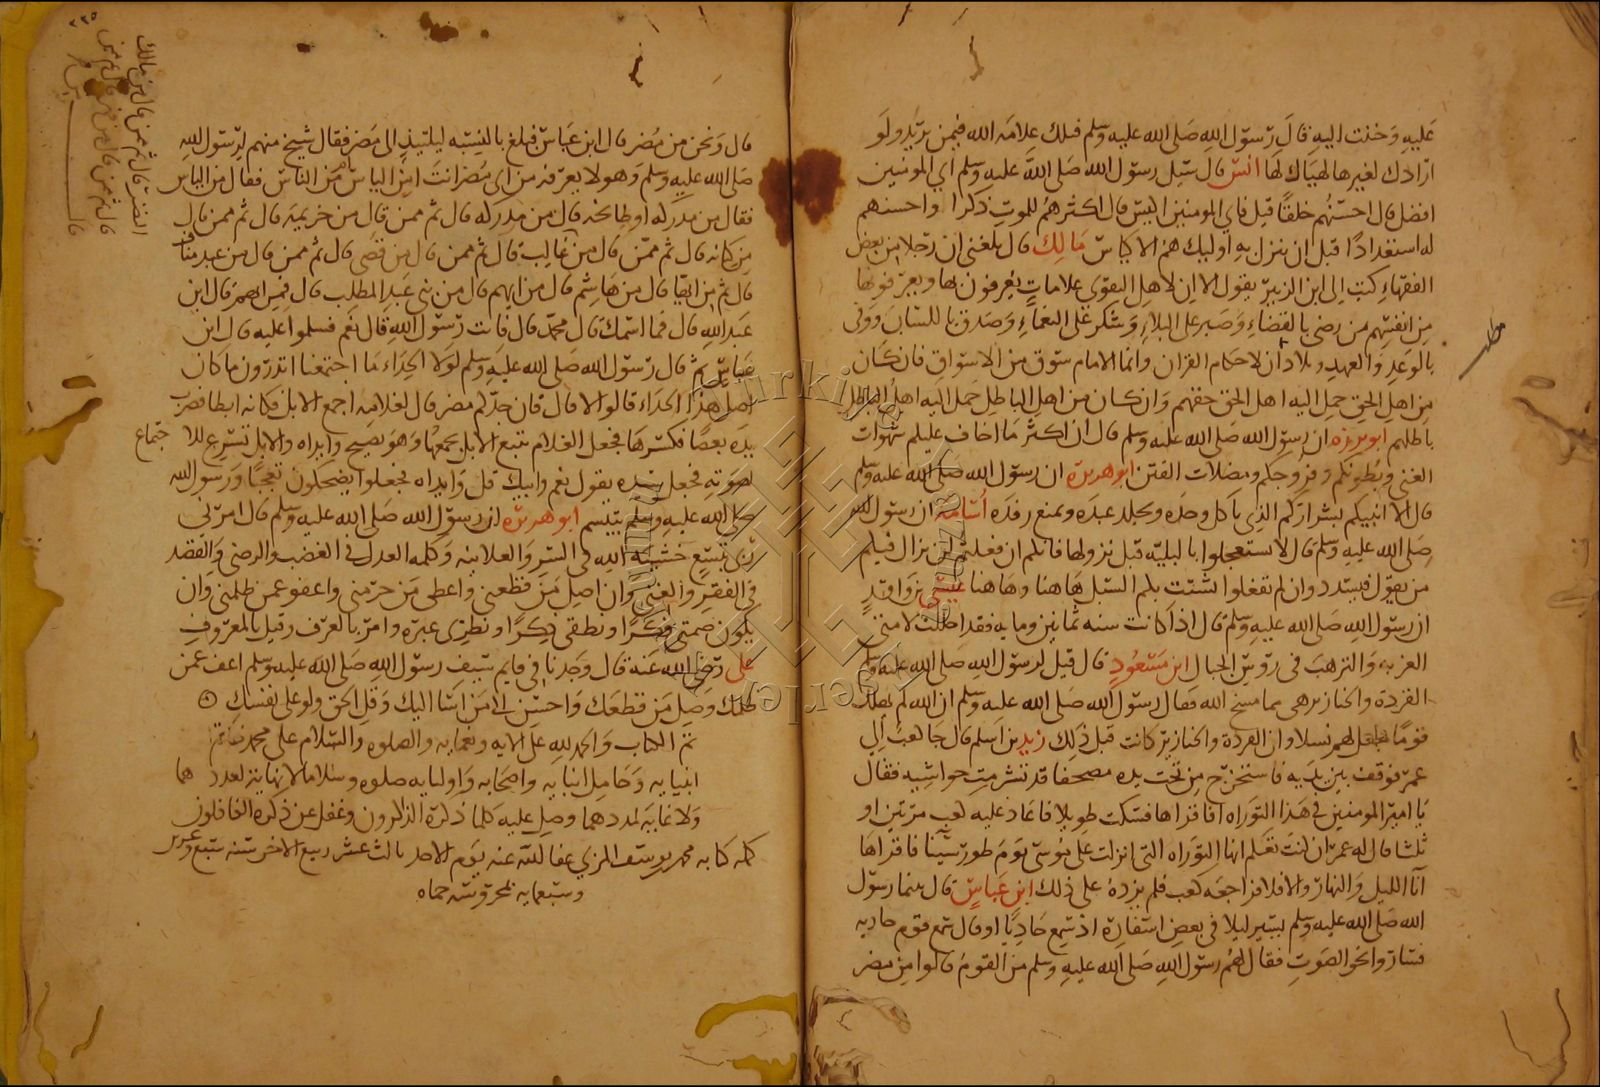 عليه وخنت اليه قال رسول الله صلى الله عليه وسلم فتلك علامه الله فيمن يريد ولو
ارادك لغيرها لهياك لها انس قال سئل رسول الله صلى الله عليه وسلم اي المومنين
افضل قال احسنهم خلقا قيل فاي المومنين اكيس قال اكثرهم للموت ذكرا واحسنهم
له استعدادا قبل ان ينزل به اوليك هم الاكياس مالك قال بلغني ان رجلا من بعض
الفقهاء كتب الى ابن الزبير يقول الا ان لاهل التقوي علامات يعرفون بها ويعرفونها
من انفسهم من رضى بالقضاء وصبر على البلاء وشكر على النعماء وصدق باللسان ووفى
بالوعد والعهد وتلا لاحكام القران وانما الامام سوق من الاسواق فان كان
من اهل الحق حمل اليه اهل الحق حقهم وان كان من اهل الباطل حمل اليه اهل الباطل
باطلهم ابو برزه ان رسول الله صلى الله عليه وسلم قال ان اكثر ما اخاف عليكم شهوات
الغنى وبطونكم وفروجكم ومضلات الفتن ابو هريرة ان رسول الله صلى الله عليه وسلم
قال الا انبيكم بشراركم الذي ياكل وحده ويجلد عبده ويمنع رفده اسامة ان رسول الله
صلى الله عليه وسلم قال لا تستعجلوا بالبليه قبل نزولها فانكم ان فعلتم لن يزال فيكم
من يقول فيسدد وان لم تفعلوا تشتت بكم السبل هاهنا وهاهنا عيسى بن واقد
ان رسول الله صلى الله عليه وسلم قال اذا كانت سنه ثمانين ومايه فقد احللت لامتي
العزبه والترهب في روس الجبال ابن مسعود قال قيل لرسول الله صلى الله عليه وسلم
القردة والخنازير هي مما مسخ الله فقال رسول الله صلى الله عليه وسلم ان الله لم يهلك
قوما فيجعل لهم نسلا وان القردة والخنازير كانت قبل ذلك زيد بن اسلم قال جا كعب الي
عمر فوقف بين يديه فاستخرج من تحت يده مصحفا قد تشرمت حواشيه فقال
يا امير المومنين في هذا التوراه افاقراها فسكت طويلا فاعاد عليه كعب مرتين او
ثلثا قال له عمر ان كنت تعلم انها التوراه التى انزلت على موسى يوم طور سينا فاقراها
آنا الليل والنهار والا فلا فراجعه كعب فلم يزده على ذلك ابن عباس قال بينما رسول
الله صلى الله عليه وسلم يسير ليلا في بعض اسفاره اذ سمع حاديا او قال سمع قوم حاديه
فساروا نحو الصوت فقال لهم رسول الله صلى الله عليه وسلم من القوم قالوا من مضر
قال ونحن من مضر قال ابن عباس فبلغ بالنسبه ليلتيذ الى مضر فقال شيخ منهم لرسول الله
صلى الله عليه وسلم وهو لا يعرفه من اى مضر انت امن الياس ام من الناس فقال من الياس
فقال من مدركه او طابخه قال من مدركه قال ثم ممن قال من خزيمه قال ثم ممن قال
من كنانه قال ثم ممن قال من غالب قال ثم ممن قال من قصي قال ثم ممن قال من عبد مناف
قال ثم من ايها قال من هاشم قال من ايهم قال من بني عبد المطلب قال فمن ايهم قال ابن
عبد الله قال فما اسمك قال محمد قال فانت رسول الله قال نعم فسلموا عليه قال ابن
عباس ثم قال رسول الله صلى الله عليه وسلم لولا الحداء ما اجتمعنا اتدرون ما كان
اصل هذا الحداء قالوا لا قال فان جدكم مضر قال لغلامه اجمع الابل فكانه ابطا فضرب
يده بعصا فكسرها فجعل الغلام تتبع الابل يجمعها وهو يصيح وايداه والابل تسرع للاجتماع
لصوته فجعل يقول نعم وابيك قل وايداه فجعلوا يضحكون تعجبا ورسول الله
صلى الله عليه وسلم يتبسم ابو هريرة ان رسول الله صلى الله عليه وسلم قال امرني
ربي بتسع خشية الله في السر والعلانيه وكلمه العدل في الغضب والرضى والقصد
في الفقر والغنى وان اصل من قطعني واعطى من حرمني واعفو عمن ظلمني وان
يكون صمتي فكرا ونطقي ذكرا ونظري عبره وامر بالعرف وقيل بالمعروف
على رضي الله عنه قال وجدنا في قايم سيف رسول الله صلى الله عليه وسلم اعف عمن
ظلمك وصل من قطعك واحسن الى من اسا اليك وقل الحق ولو على نفسك
تم الكتاب والحمد لله على الايه ونعمايه والصلوه والسلام على محمد خاتم
انبيايه وحامل انبايه واصحابه واوليايه صلوه وسلاما لا نهاية لعددهما
ولا غاية لمددهما وصل عليه كلما ذكره الذاكرون وغفل عن ذكره الغافلون
كمله كتابه محمد بن يوسف المزي عفا الله عنه يوم الاحد ثالث عشر ربيع الاخر سنه سبع وعشرين
وسبعمايه بمحروسه حماه